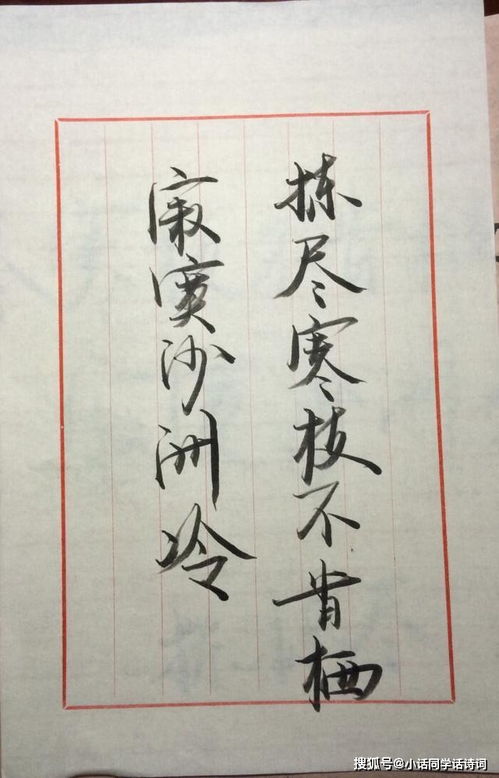 拣尽寒枝不肯栖
寂寞沙洲冷
搜狐号@小话同学话诗词